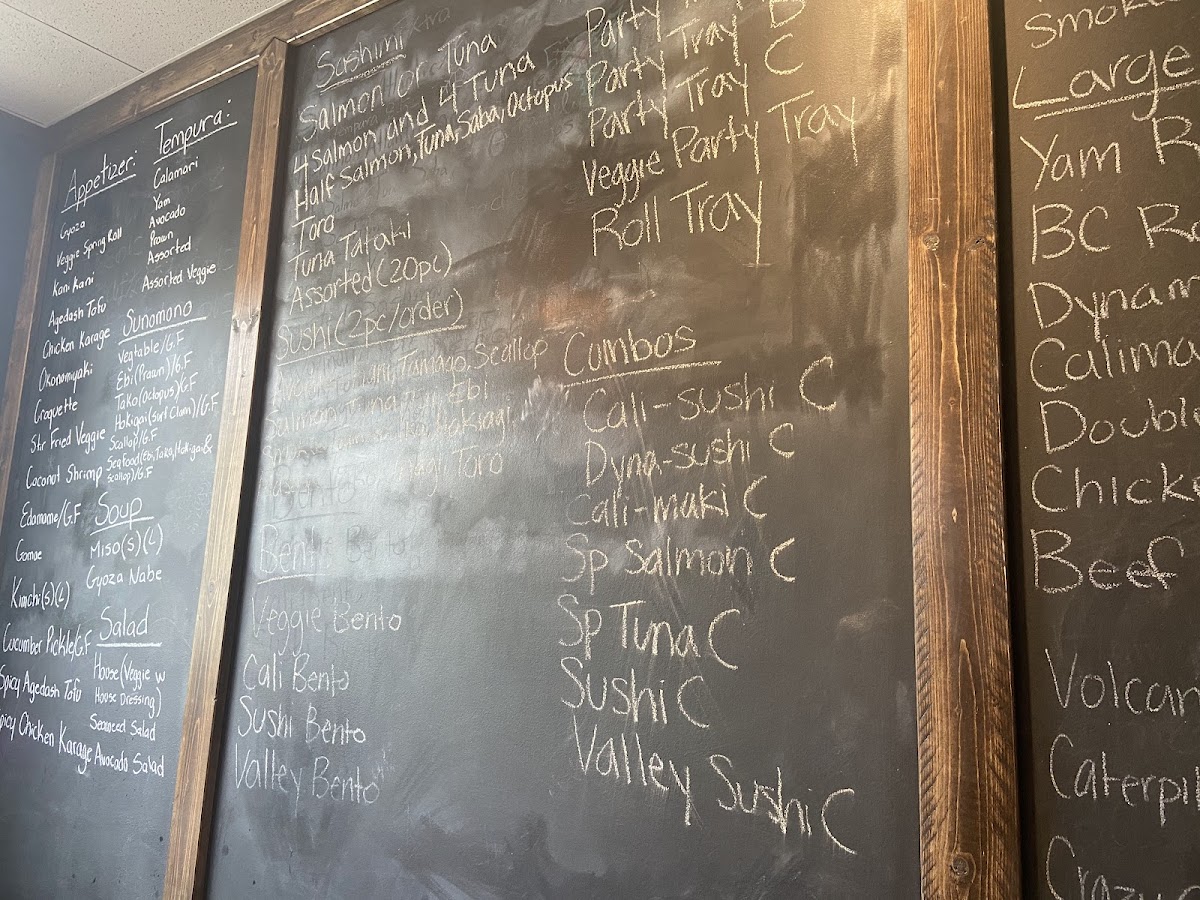 Appetizer:
Gyoza
Veggie Spring Roll
Kani Kani
Agedash Tofu
Chicken Karage
Okonomiyaki
Croquette
Stir Fried Veggie
Coconut Shrimp
Edamame/G.F
Gomae
Kimchi(S)(L)
Cucumber Pickle/G.F
Spicy Agedash Tofu
Spicy Chicken Karage
Tempura:
Calamari
Yam
Avocado
Prawn
Assorted
Assorted Veggie
Sunomono
Vegtable/G.F
Ebi(Prawn)/G.F
Tako(Octopus)G/F
Hokigai(surf Clam)/G.F
Scallop/G.F
Seafood(Ebi,Tako,Hokigai&
scallop)/G.F
Soup
Miso(S)(L)
Gyoza Nabe
Salad
House(Veggie w
House Dressing)
Seaweed Salad
Avocado Salad
Sashimi
Salmon or Tuna
4 Salmon and 4 Tuna
Half Salmon,Tuna,Saba,Octopus
Toro
Tuna Tataki
Assorted(20pc)
Sushi(2pc/order)
Tamago,Scallop
Ebi
Toro
Bento
Veggie Bento
Cali Bento
Sushi Bento
Valley Bento
Party
Party Tray B
Party Tray C
Veggie Party Tray
Roll Tray
Combos
Cali-sushi C
Dyna-sushi C
Cali-maki C
Sp Salmon C
Sp Tuna C
Sushi C
Valley Sushi C
Large
Yam R
BC Ro
Dynam
Calima
Double
Chicke
Beef
Volcan
Caterpil
Crazy